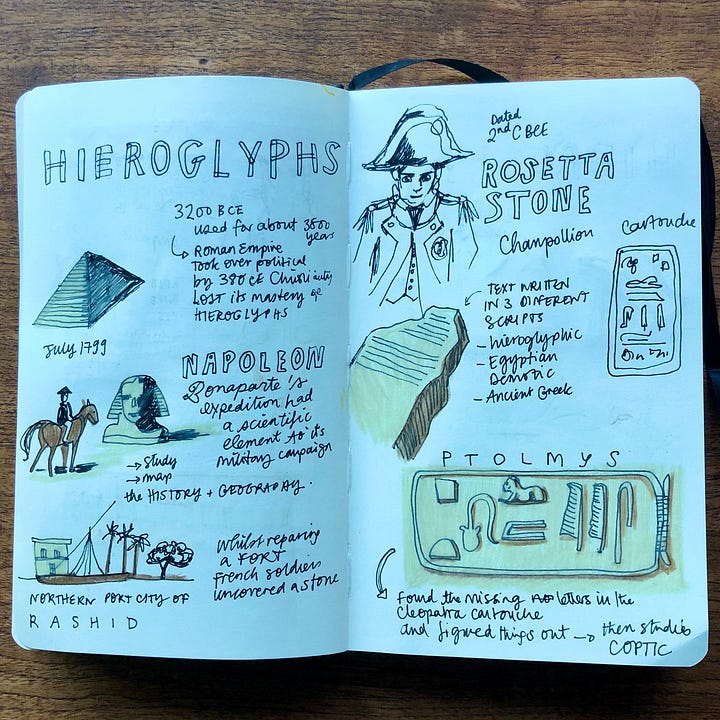 HIEROGLYPHS
3200 BCE
used for about 3500
years
Roman Empire
took over political
by 380 CE Christianity
LOST its mastery of
HIEROGLYPHS
July 1799
NAPOLEON
Bonaparte's
expedition had
a scientific
element to its
military campaign
→ study
→ map
the HISTORY + GEOGRAPHY.
Whilst repairing
a FORT
French soldiers
uncovered a stone
NORTHERN PORT CITY OF
RASHID
Dated
2nd C BCE
ROSETTA
STONE
Champollion
cartouche
TEXT WRITTEN
IN 3 DIFFERENT
SCRIPTS
- hieroglyphic
- Egyptian
Demotic
- Ancient Greek
PTOLMYS
found the missing letters in the
Cleopatra cartouche
and figured things out → then studies
COPTIC